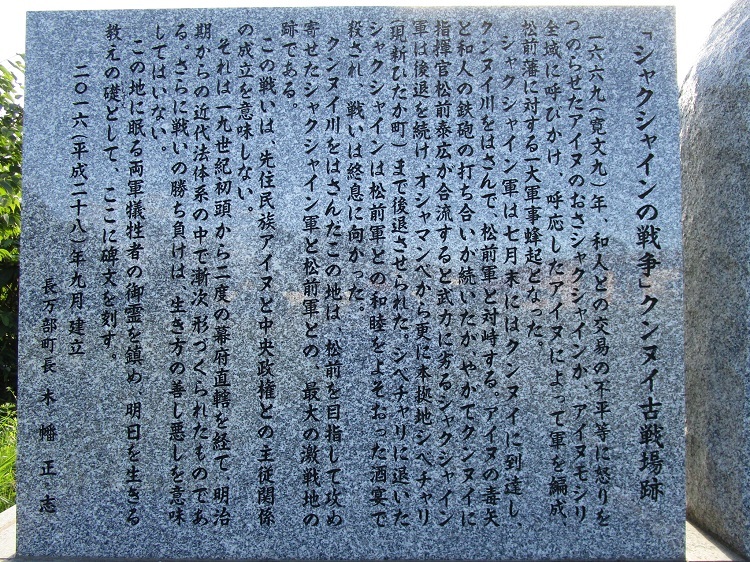 「シャクシャインの戦争」クンヌイ古戦場跡
一六六九(寛文九)年、和人との交易の不平等に怒りを
つのらせたアイヌのおさシャクシャインが、アイヌモシリ
全域に呼びかけ、呼応したアイヌによって軍を編成、
松前藩に対する一大軍事蜂起となった。
シャクシャイン軍は七月末にはクンヌイに到達し、
クンヌイ川をはさんで、松前軍と対峙する。アイヌの毒矢
と和人の鉄砲の打ち合いが続いたが、やがてクンヌイに
指揮官松前泰広が合流すると武力に劣るシャクシャイン
軍は後退を続け、オシャマンベから更に本拠地シベチャリ
(現新ひたか町)まで後退させられた。シベチャリに退いた
シャクシャインは松前軍との和睦をよそおった酒宴で
殺され、戦いは終息に向かった。
クンヌイ川をはさんだこの地は、松前を目指して攻め
寄せたシャクシャイン軍と松前軍との、最大の激戦地の
跡である。
この戦いは、先住民族アイヌと中央政権との主従関係
の成立を意味しない。
それは一九世紀初頭から二度の幕府直轄を経て、明治
期からの近代法体系の中で漸次形づくられたものであ
る。さらに戦いの勝ち負けは、生き方の善し悪しを意味
してはいない。
この地に眠る両軍犠牲者の御霊を鎮め、明日を生きる
教えの礎として、ここに碑文を刻す。
二〇一六(平成二十八)年九月建立
長万部町長 木幡正志